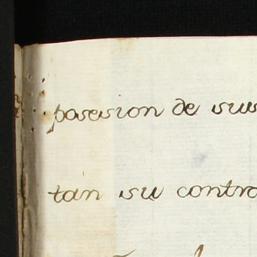 posesion de sus
tan su contra